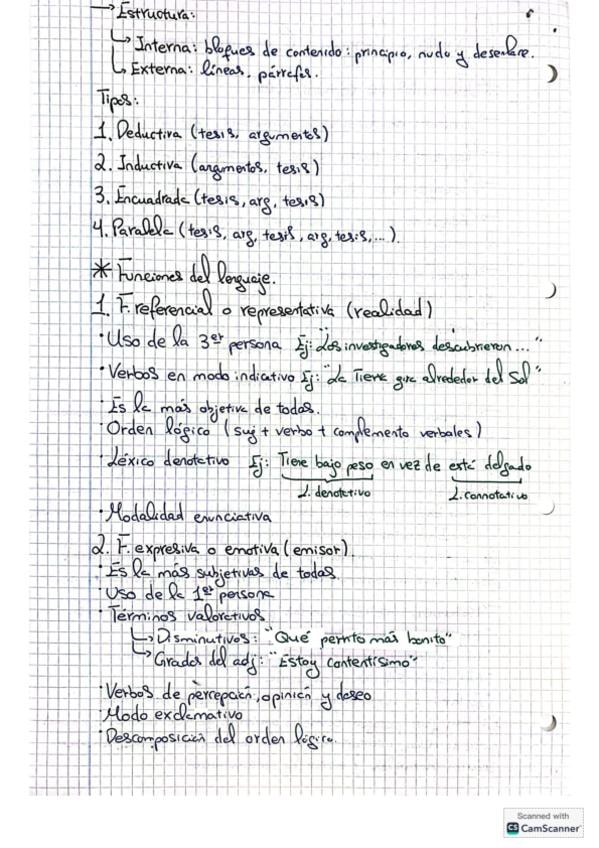 →Estructura:
↳ Interna: bloques de contenido: principio, nudo y desenlace.
↳ Externa: líneas, párrafos.
Tipos:
1. Deductiva (tesis, argumentos)
2. Inductiva (argumentos, tesis)
3. Encuadrada (tesis, arg, tesis)
4. Paralela (tesis, arg, tesis, arg, tesis,...).
* Funciones del lenguaje.
1. F. referencial o representativa (realidad)
·Uso de la 3er persona Ej: "Los investigadores descubrieron..."
·Verbos en modo indicativo Ej: "La Tierra gira alrededor del Sol"
·Es la más objetiva de todas.
·Orden lógico (suj + verbo + complemento verbales)
·Léxico denotativo Ej: Tiene bajo peso en vez de está delgado
L. denotativo L. connotativo
·Modalidad enunciativa
2. F. expresiva o emotiva (emisor).
·Es la más subjetivas de todas.
·Uso de la 1er persona
·Términos valorativos
↳ Disminutivos: "Qué perrito más bonito"
↳ Grados del adj: "Estoy contentísimo"
·Verbos de percepción, opinión y deseo
·Modo exclamativo
·Descomposición del orden lógico.
Scanned with
CS CamScanner